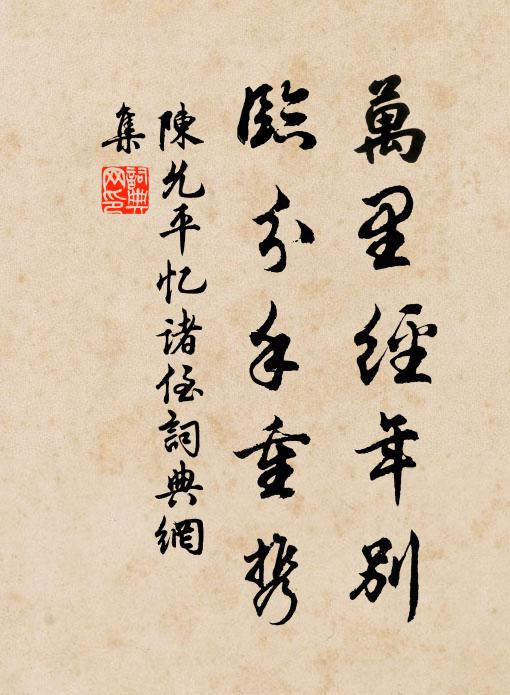 萬里經年別
臨分手重携
陳允平忆诸侄詞典網
集
詞典网印